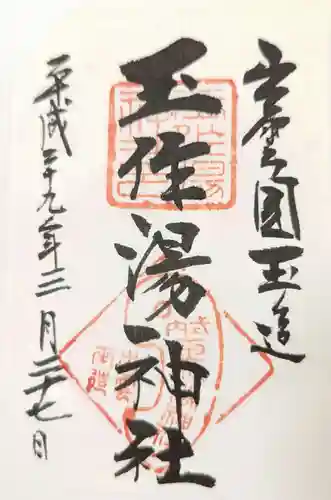 出雲之國玉造
玉作湯神社
平成二十九年三月二十七日